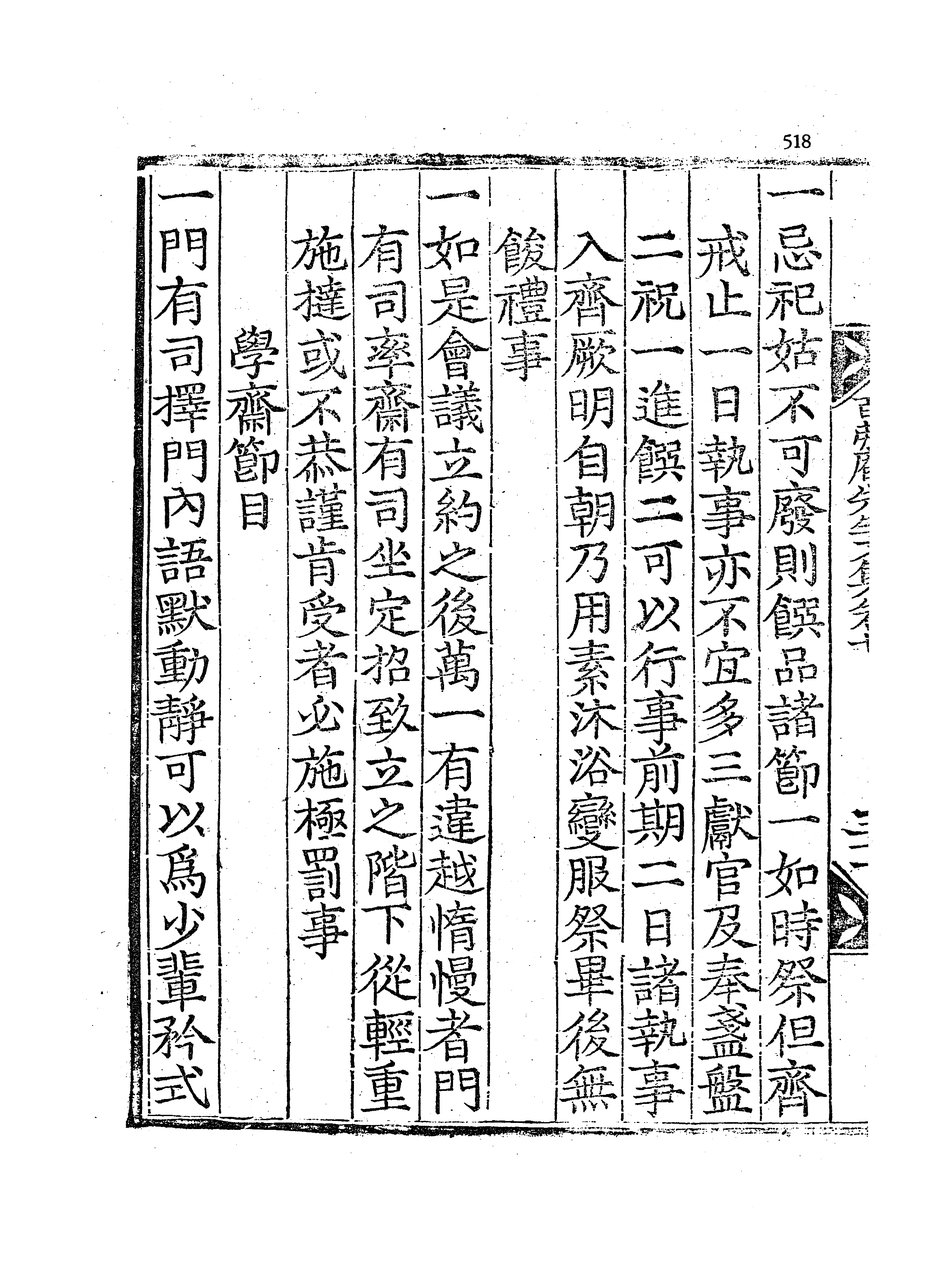 518
一忌祀姑不可廢則饌品諸節一如時祭但齊
戒止一日執事亦不宜多三獻官及奉盞盤
二祝一進饌二可以行事前期二日諸執事
入齊厥明自朝乃用素沐浴變服祭畢後無
餕禮事
一如是會議立約之後萬一有違越惰慢者門
有司率齋有司坐定招致立之階下從輕重
施撻或不恭謹肯受者必施極罰事
學齋節目
一門有司擇門內語默動靜可以爲少輩矜式